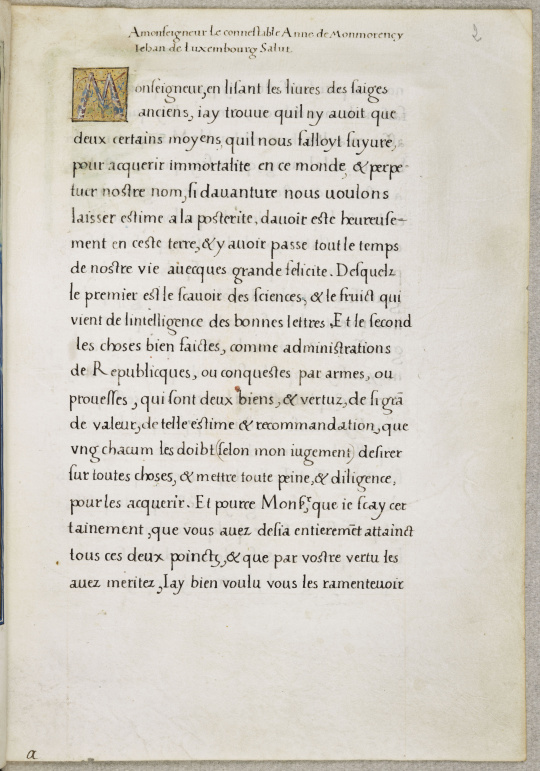 A monseigneur Le connestable Anne de Monmorency
Iehan de Luxembourg Salut.
2
Monseigneur, en lisant les liures des saiges
anciens, iay trouue quil ny auoit que
deux certains moyens, quil nous falloyt suyure,
pour acquerir immortalite en ce monde, & perpe-
tuer nostre nom, si dauanture nous uoulons
laisser estime a la posterite, dauoir este heureuse-
ment en ceste terre, & y auoir passe tout le temps
de nostre vie auecques grande felicite. Desquelz
le premier est le scauoir des sciences, & le fruict qui
vient de lintelligence des bonnes lettres. Et le second
les choses bien faictes, comme administrations
de Republicques, ou conquestes par armes, ou
prouesses, qui sont deux biens, & vertuz, de si grā
de valeur, de telle estime & recommandation, que
vng chacum les doibt (selon mon iugement) desirer
sur toutes choses, & mettre toute peine, & diligence,
pour les acquerir. Et pource Monsr, que ie scay cer
tainement, que vous auez desia entieremēt attainct
tous ces deux poincts, & que par vostre vertu les
auez meritez, Iay bien voulu vous les ramenteuoir
a